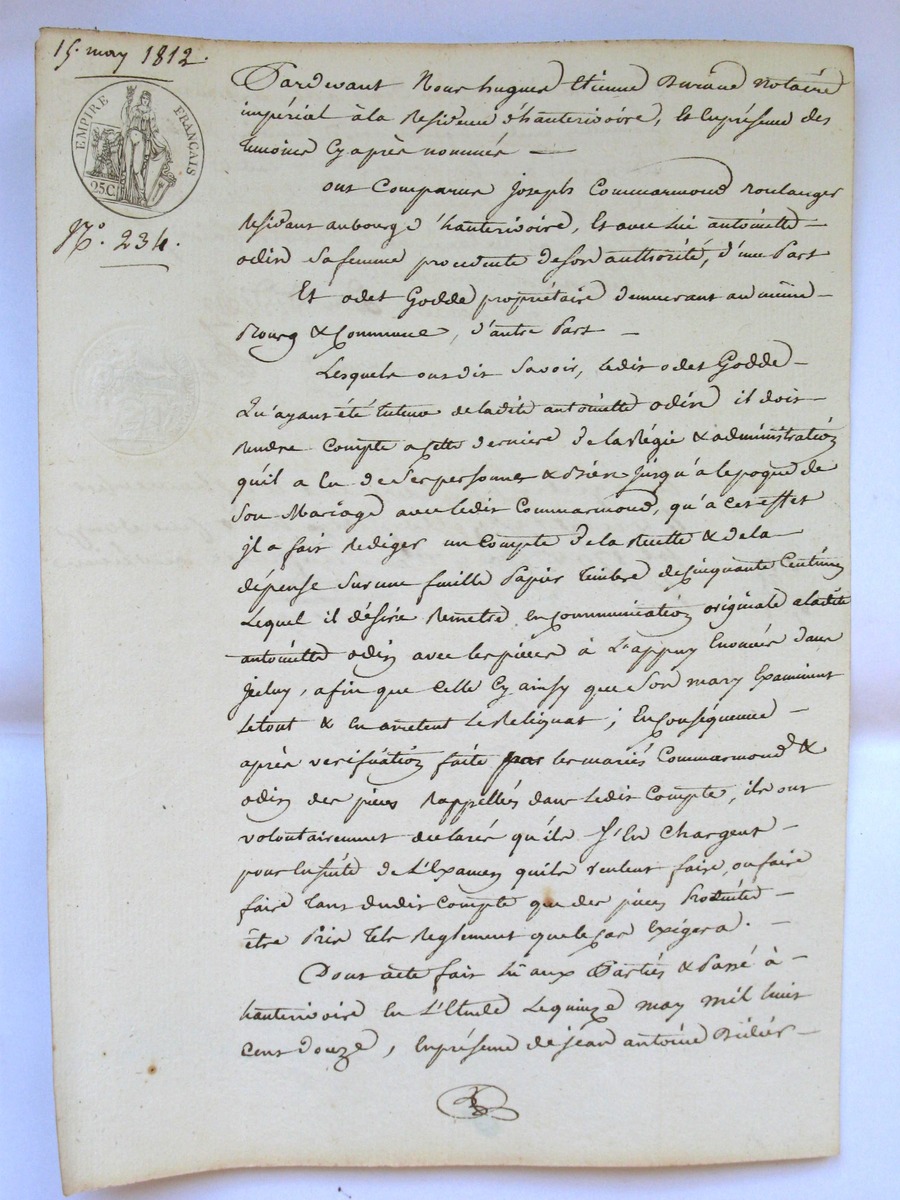 15. may 1812.
EMPIRE FRANÇAIS
25C
N.o 234.
Pardevant Nous hugues Etienne Durand Notaire
impérial à la Residence d'hauterivoire, Et en présence des
temoins Cy après nommés —
ont Comparus Joseph Commarmond boulanger
Residant au bourg d'hauterivoire, Et avec lui antoinette —
odin Sa femme procedente de son authorité, d'une Part
Et odet Godde propriétaire demeurant au même —
Bourg & Commune, d'autre Part —
Lesquels ont dit Savoir, ledit odet Godde —
Qu'ayant été tuteur de ladite antoinette odin il doit —
Rendre Compte a Cette derniere de la Régie & administration
qu'il a Eu de Ses personnes & biens Jusqu'à l'epoque de
Son Mariage avec ledit Commarmond, qu'à cet effet
il a fait Rediger un Compte de la Recette & de la —
dépense Sur une feuille Papier timbré de Cinquante Centimes
Lequel il désire Remettre en Communication originale a ladite
antoinette odin avec les pièces à L'appuy Enoncés dans
Jceluy, afin que Celle Cy ainsy que Son mary Examinent
Letout & En arretent Le Reliquat ; En Conséquence —
après verification faite par les mariés Commarmond &
odin des pieces Rappellées dans ledit Compte, ils ont
volontairement declarés qu'ils S'En Chargent —
pour Ensuite de L'Examen qu'ils veulent faire, ou faire
faire tant dudit Compte que des pieces Produites —
être Pris tels Reglement que le Cas Exigera . —
Dont acte fait Lû aux Parties & Passé à —
hauterivoire En L'Etude Le quinze may mil huit
cent douze, En présence de jean antoine Didier —